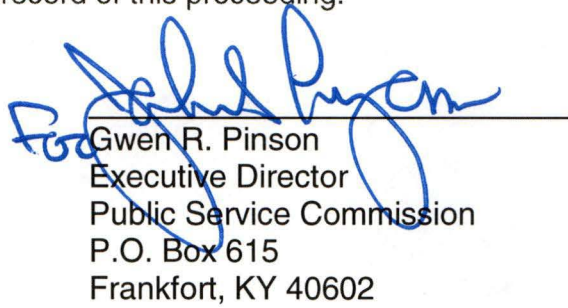 record of this proceeding.
For
Gwen R. Pinson
Executive Director
Public Service Commission
P.O. Box 615
Frankfort, KY 40602